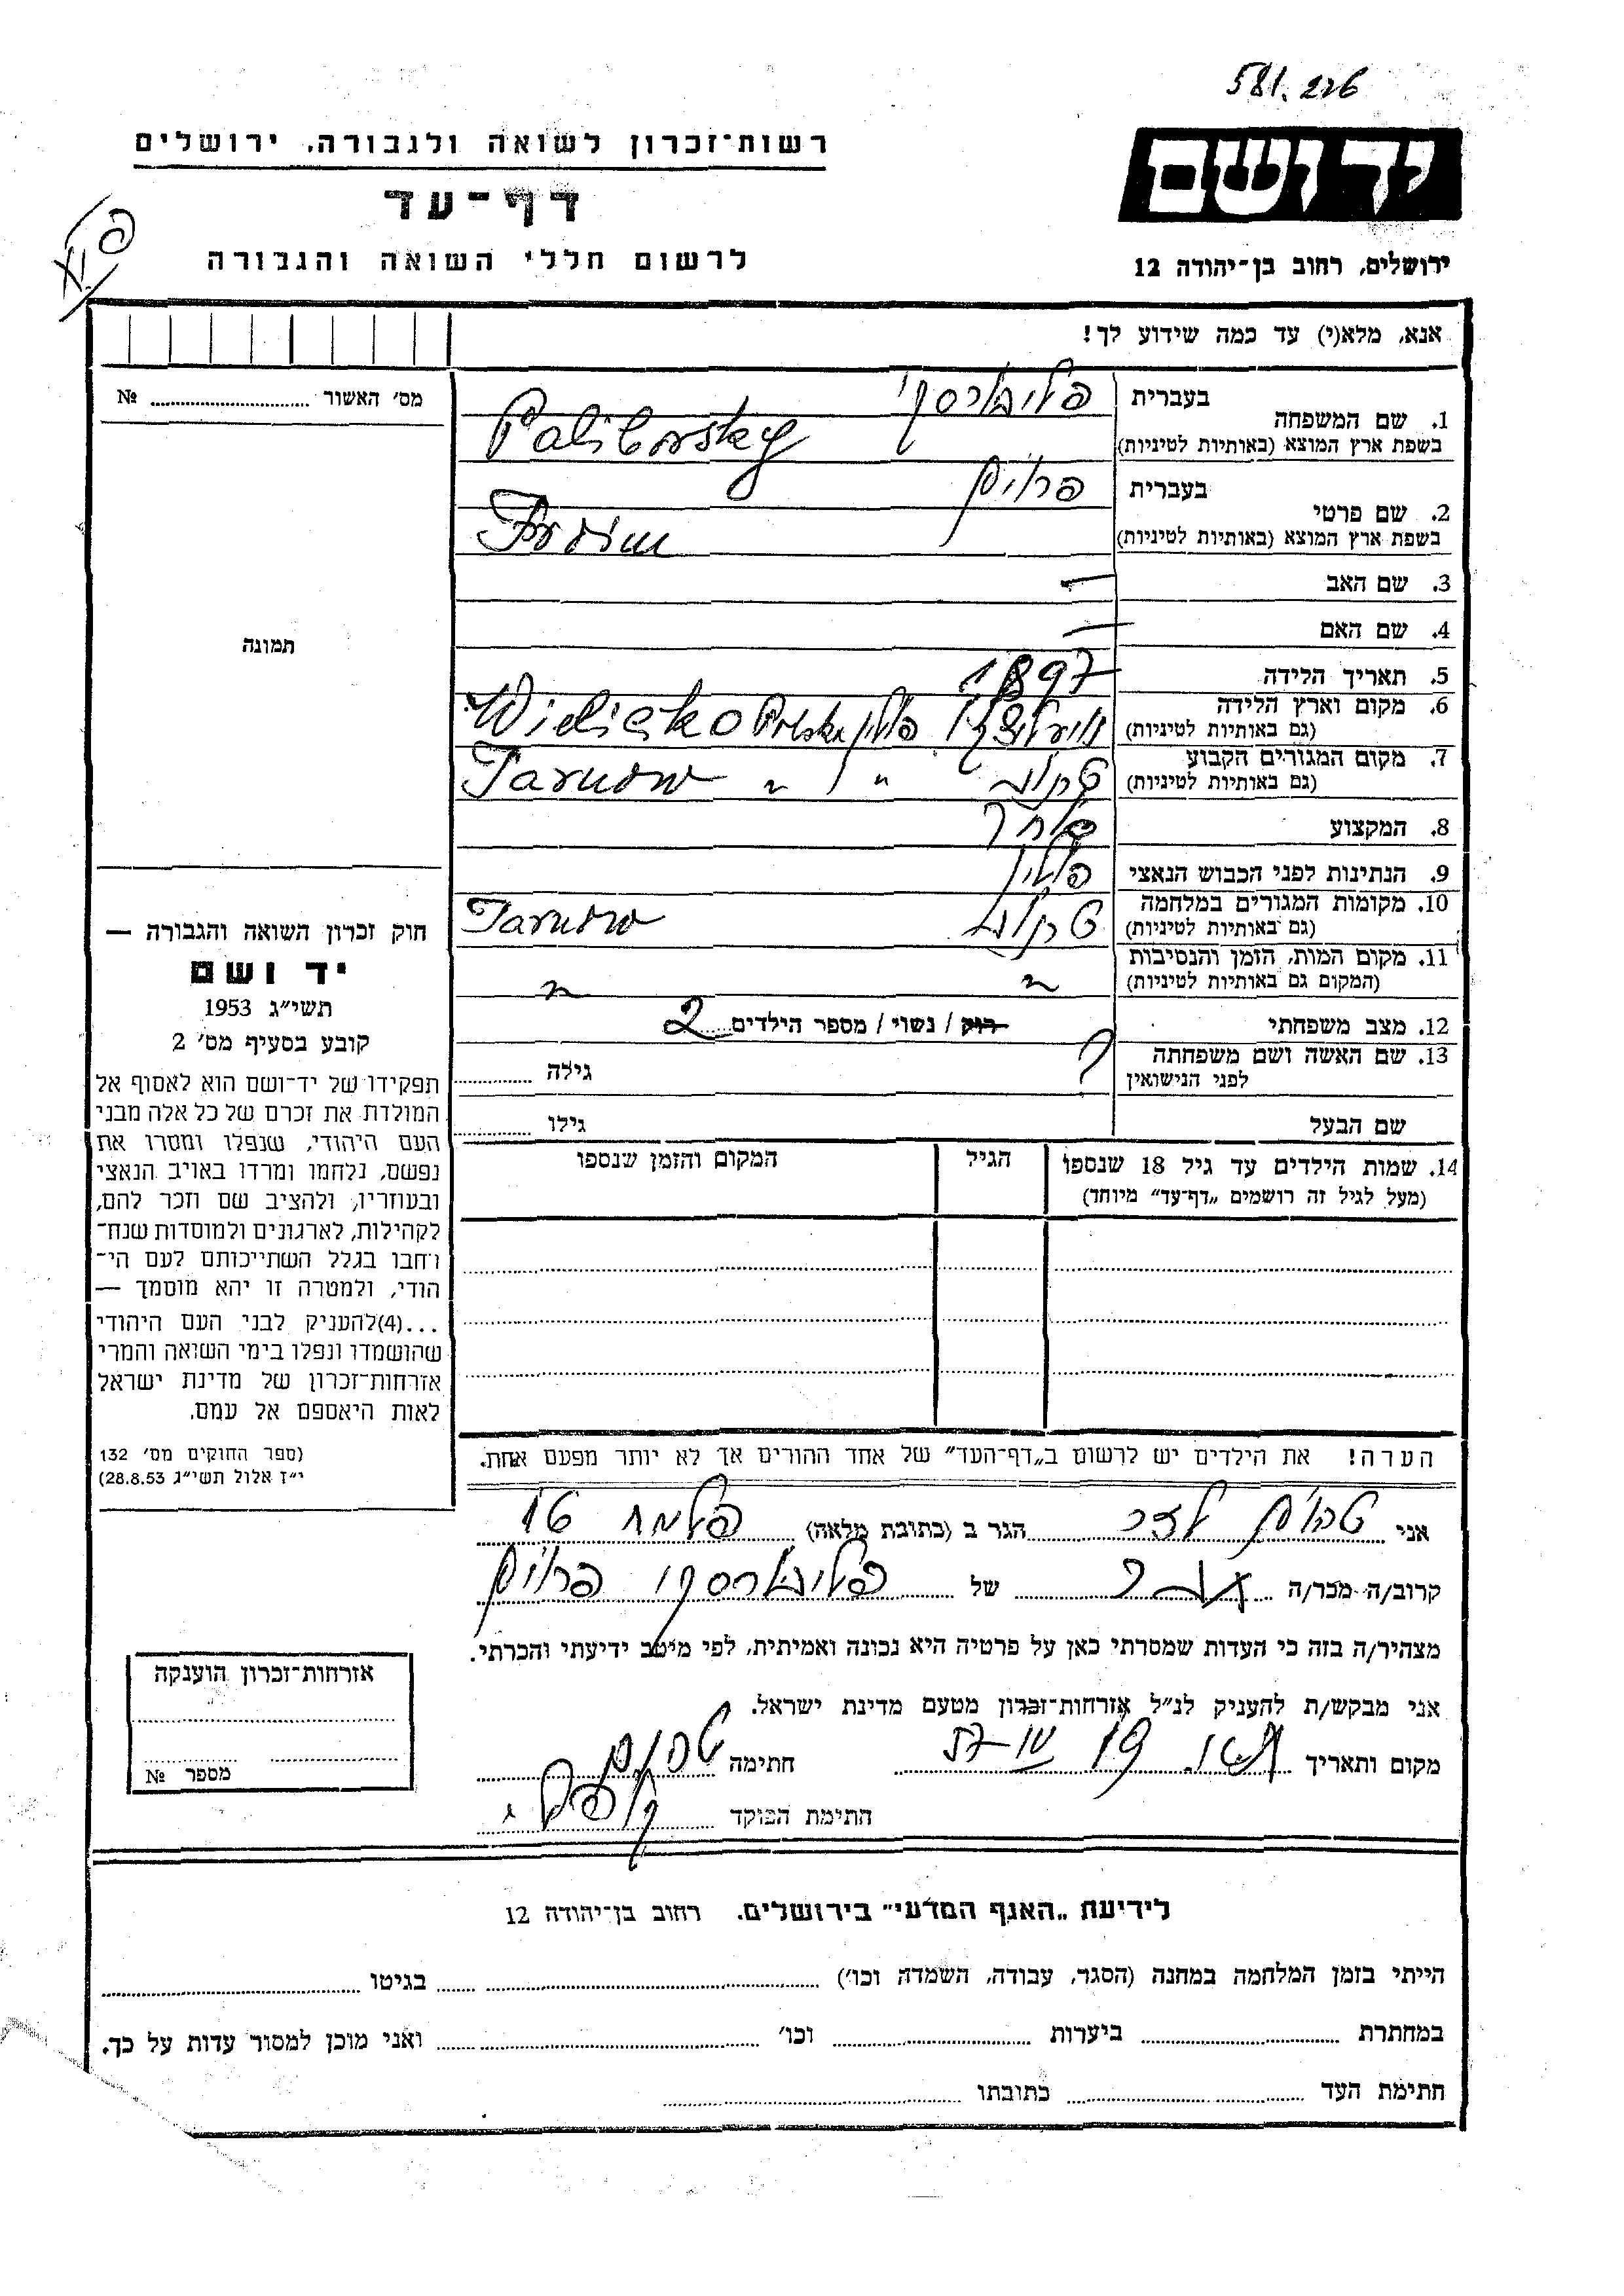 581.226
רשות־זכרון לשואה ולגבורה, ירושלים
יד ושם
דף־עד
לרשום חללי השואה והגבורה
ירושלים, רחוב בן־יהודה 12
אנא, מלא(י) עד כמה שידוע לך!
מס׳ האשור № 
1. שם המשפחה
בעברית פליבורסקי
בשפת ארץ המוצא (באותיות לטיניות) Paliborsky
2. שם פרטי
בעברית פרוים
בשפת ארץ המוצא (באותיות לטיניות) Froim
3. שם האב —
4. שם האם —
תמונה
5. תאריך הלידה 1897
6. מקום וארץ הלידה
(גם באותיות לטיניות) פולין Polska
7. מקום המגורים הקבוע
(גם באותיות לטיניות) טרנוב " Tarnow "
8. המקצוע סוחר
9. הנתינות לפני הכבוש הנאצי פולין
10. מקומות המגורים במלחמה
(גם באותיות לטיניות) טרנוב Tarnow
11. מקום המות, הזמן והנסיבות
(המקום גם באותיות לטיניות) " "
12. מצב משפחתי רוק / נשוי / מספר הילדים 2
13. שם האשה ושם משפחתה ?
לפני הנישואין גילה
שם הבעל גילו
14. שמות הילדים עד גיל 18 שנספו הגיל המקום והזמן שנספו
(מעל לגיל זה רושמים „דף־עד” מיוחד)
חוק זכרון השואה והגבורה —
יד ושם
תשי״ג 1953
קובע בסעיף מס׳ 2
תפקידו של יד־ושם הוא לאסוף אל
המולדת את זכרם של כל אלה מבני
העם היהודי, שנפלו ומסרו את
נפשם, נלחמו ומרדו באויב הנאצי
ובעוזריו, ולהציב שם וזכר להם,
לקהילות, לארגונים ולמוסדות שנח־
רחבו בגלל השתייכותם לעם הי־
הודי, ולמטרה זו יהא מוסמך —
...(4)להעניק לבני העם היהודי
שהושמדו ונפלו בימי השואה והמרי
אזרחות־זכרון של מדינת ישראל
לאות היאספם אל עמם.
(ספר החוקים מס׳ 132
י״ז אלול תשי״ג 28.8.53)
הערה! את הילדים יש לרשום ב„דף־העד” של אחד ההורים אך לא יותר מפעם אחת.
אני הגר ב (כתובת מלאה) פלמח 16
קרוב/ה־מכר/ה של פליבורסקי פרוים
מצהיר/ה בזה כי העדות שמסרתי כאן על פרטיה היא נכונה ואמיתית, לפי מיטב ידיעתי והכרתי.
אני מבקש/ת להעניק לנ״ל אזרחות־זכרון מטעם מדינת ישראל.
מקום ותאריך חתימה
חתימת הפוקד
אזרחות־זכרון הוענקה
מספר №
לידיעת „האגף המדעי” בירושלים. רחוב בן־יהודה 12
הייתי בזמן המלחמה במחנה (הסגר, עבודה, השמדה וכו׳) בגיטו
במחתרת ביערות וכו׳ ואני מוכן למסור עדות על כך.
חתימת העד כתובתו